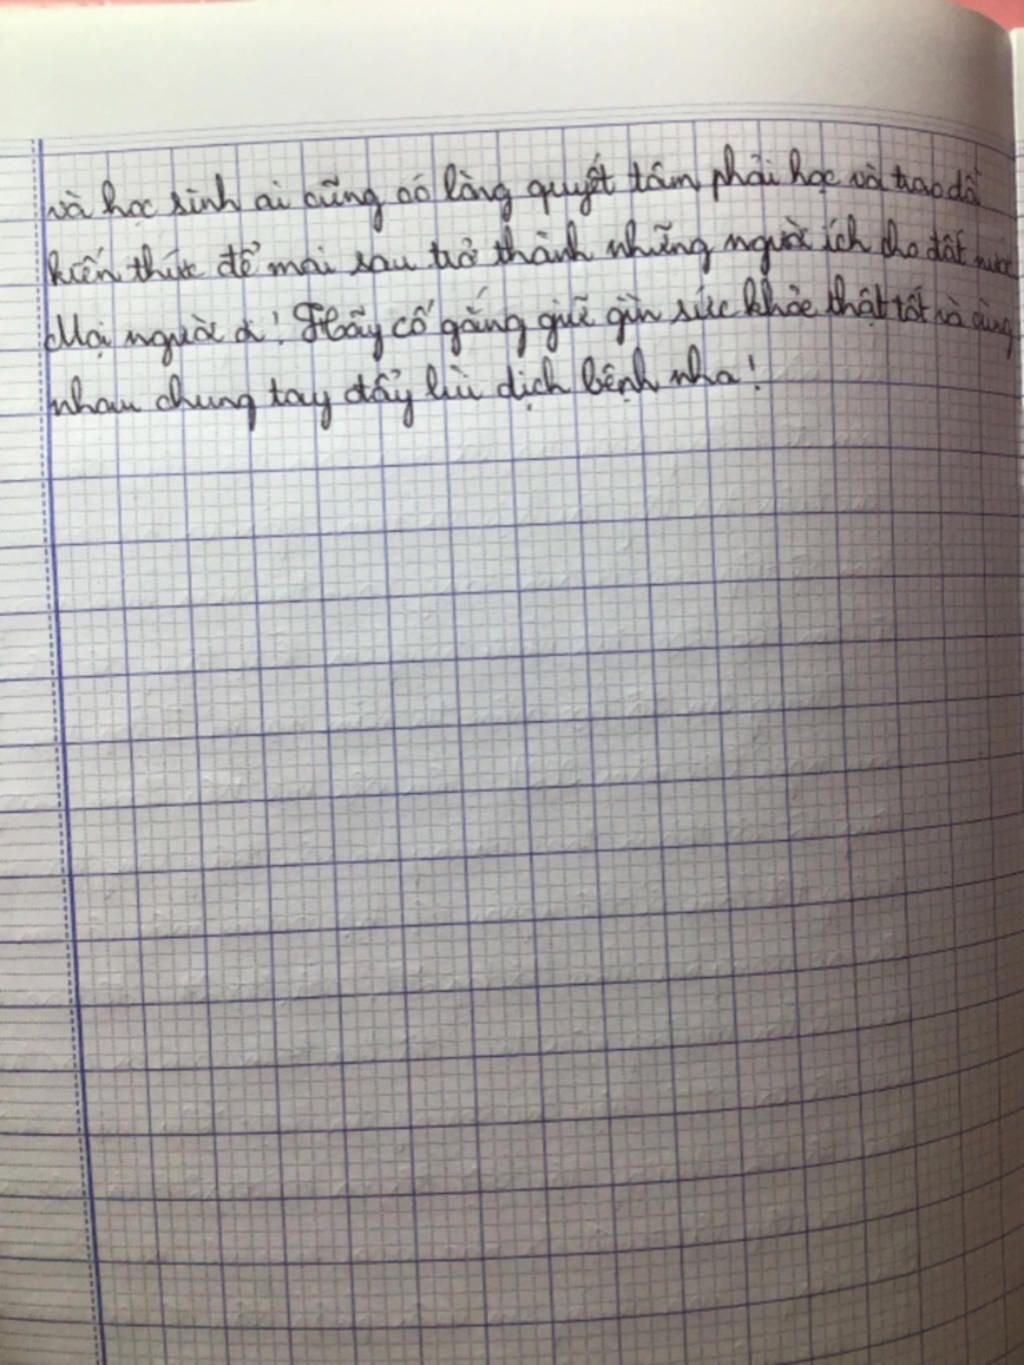 và học sinh ai cũng có lòng quyết tâm phải học và trao dồi
kiến thức để mai sau trở thành những người ích cho đất nước
Mọi người ơi! Hãy cố gắng giữ gìn sức khỏe thật tốt và cùng
nhau chung tay đẩy lùi dịch bệnh nha!